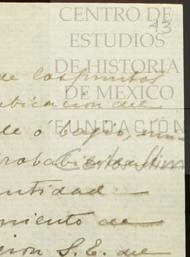 CENTRO DE
ESTUDIOS
DE HISTORIA
DE MEXICO
FUNDACIÓN
Carlos Slim
23
de los puntos
ubicacion del
de ó bajío,
probabi
ntidad
miento de
gion S. E. del